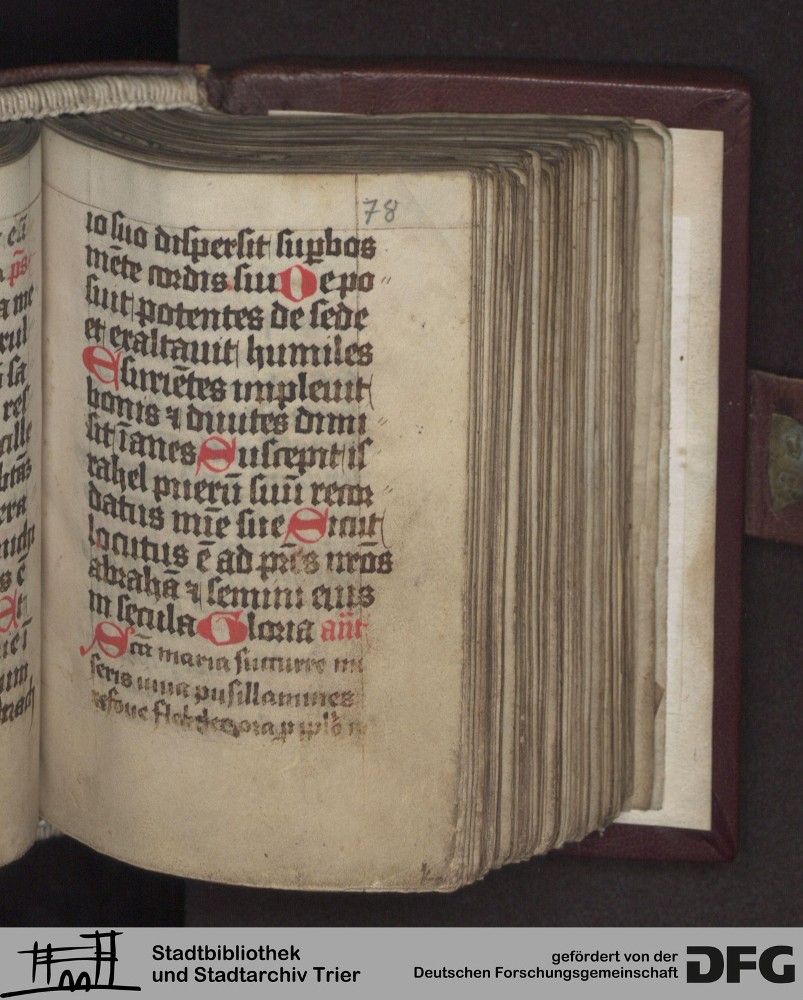 78
io suo dispersit supbos
mēte cordis sui Depo
suit potentes de sede
et exaltauit humiles
Esuriētes impleuit
bonis ⁊ diuites dimi
sit īanes Suscepit is
rahel puerū suū recor
datus mīe sue Sicut
locutus ē ad pr̄es nr̄os
abrahā ⁊ semini eius
in secula Gloria an̄t
Scā maria succurre mi
seris iuua pusillanimes
refoue flebiles ora p pplō
Stadtbibliothek
und Stadtarchiv Trier
gefördert von der
Deutschen Forschungsgemeinschaft
DFG